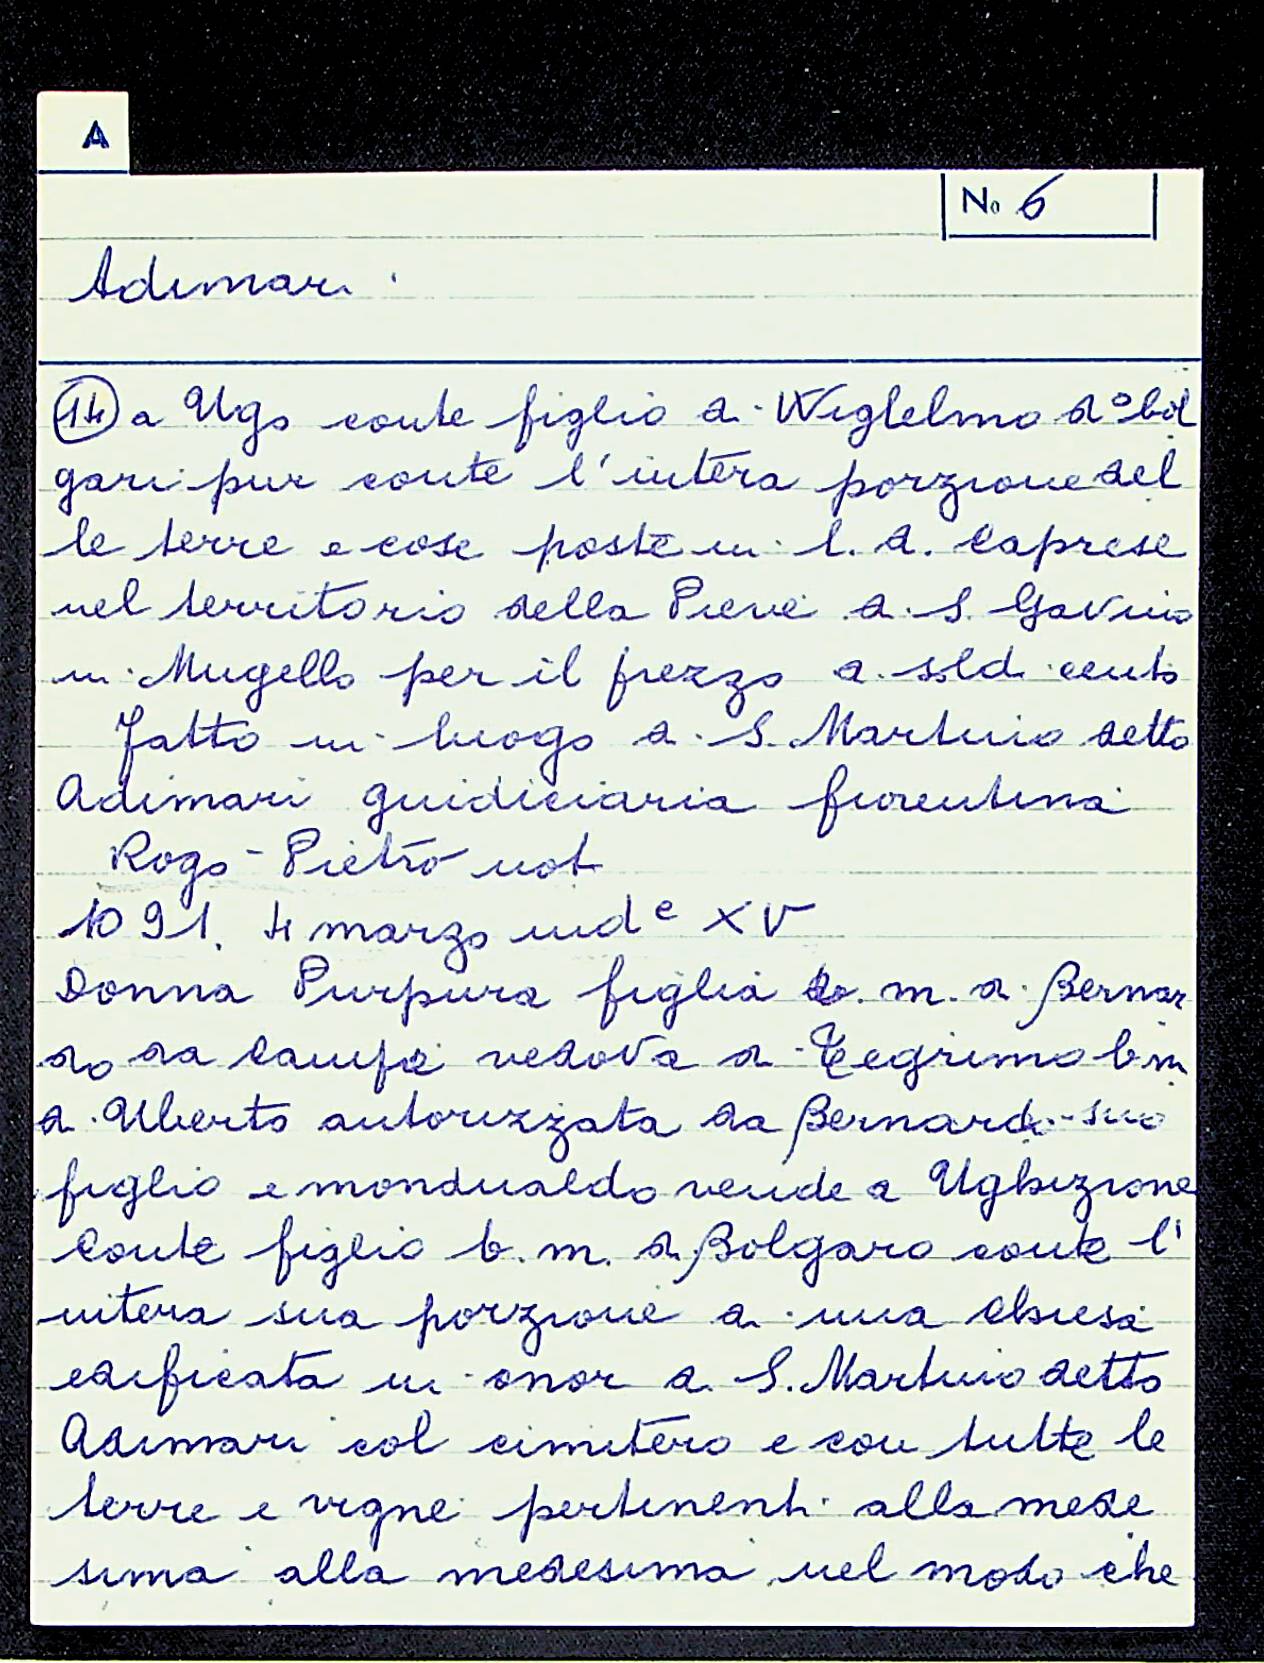 A
No 6
Adimari
(14) a Ugo conte figlio di Wiglelmo d° bol
gari pur conte l'intera porzione del
le terre e cose poste in l. d. Caprese
nel territorio della Pieve di S. Gavino
in Mugello per il prezzo di sold. cento
Fatto in luogo di S. Martino detto
Adimari guidiciaria fiorentina
Rogo - Pietro not
1091. 4 marzo indᵉ XV
Donna Purpura figlia b. m. di Bernar
do da vedova di Tegrimo b m
di Uberto autorizzata da Bernardo suo
figlio e mondualdo vende a Ughizione
Conte figlio b. m. di Bolgaro conte l'
intera sua porzione di una chiesa
edificata in onor di S. Martino detto
Adimari col cimitero e con tutte le
terre e vigne pertinenti alla mede
sima alla medesima nel modo che